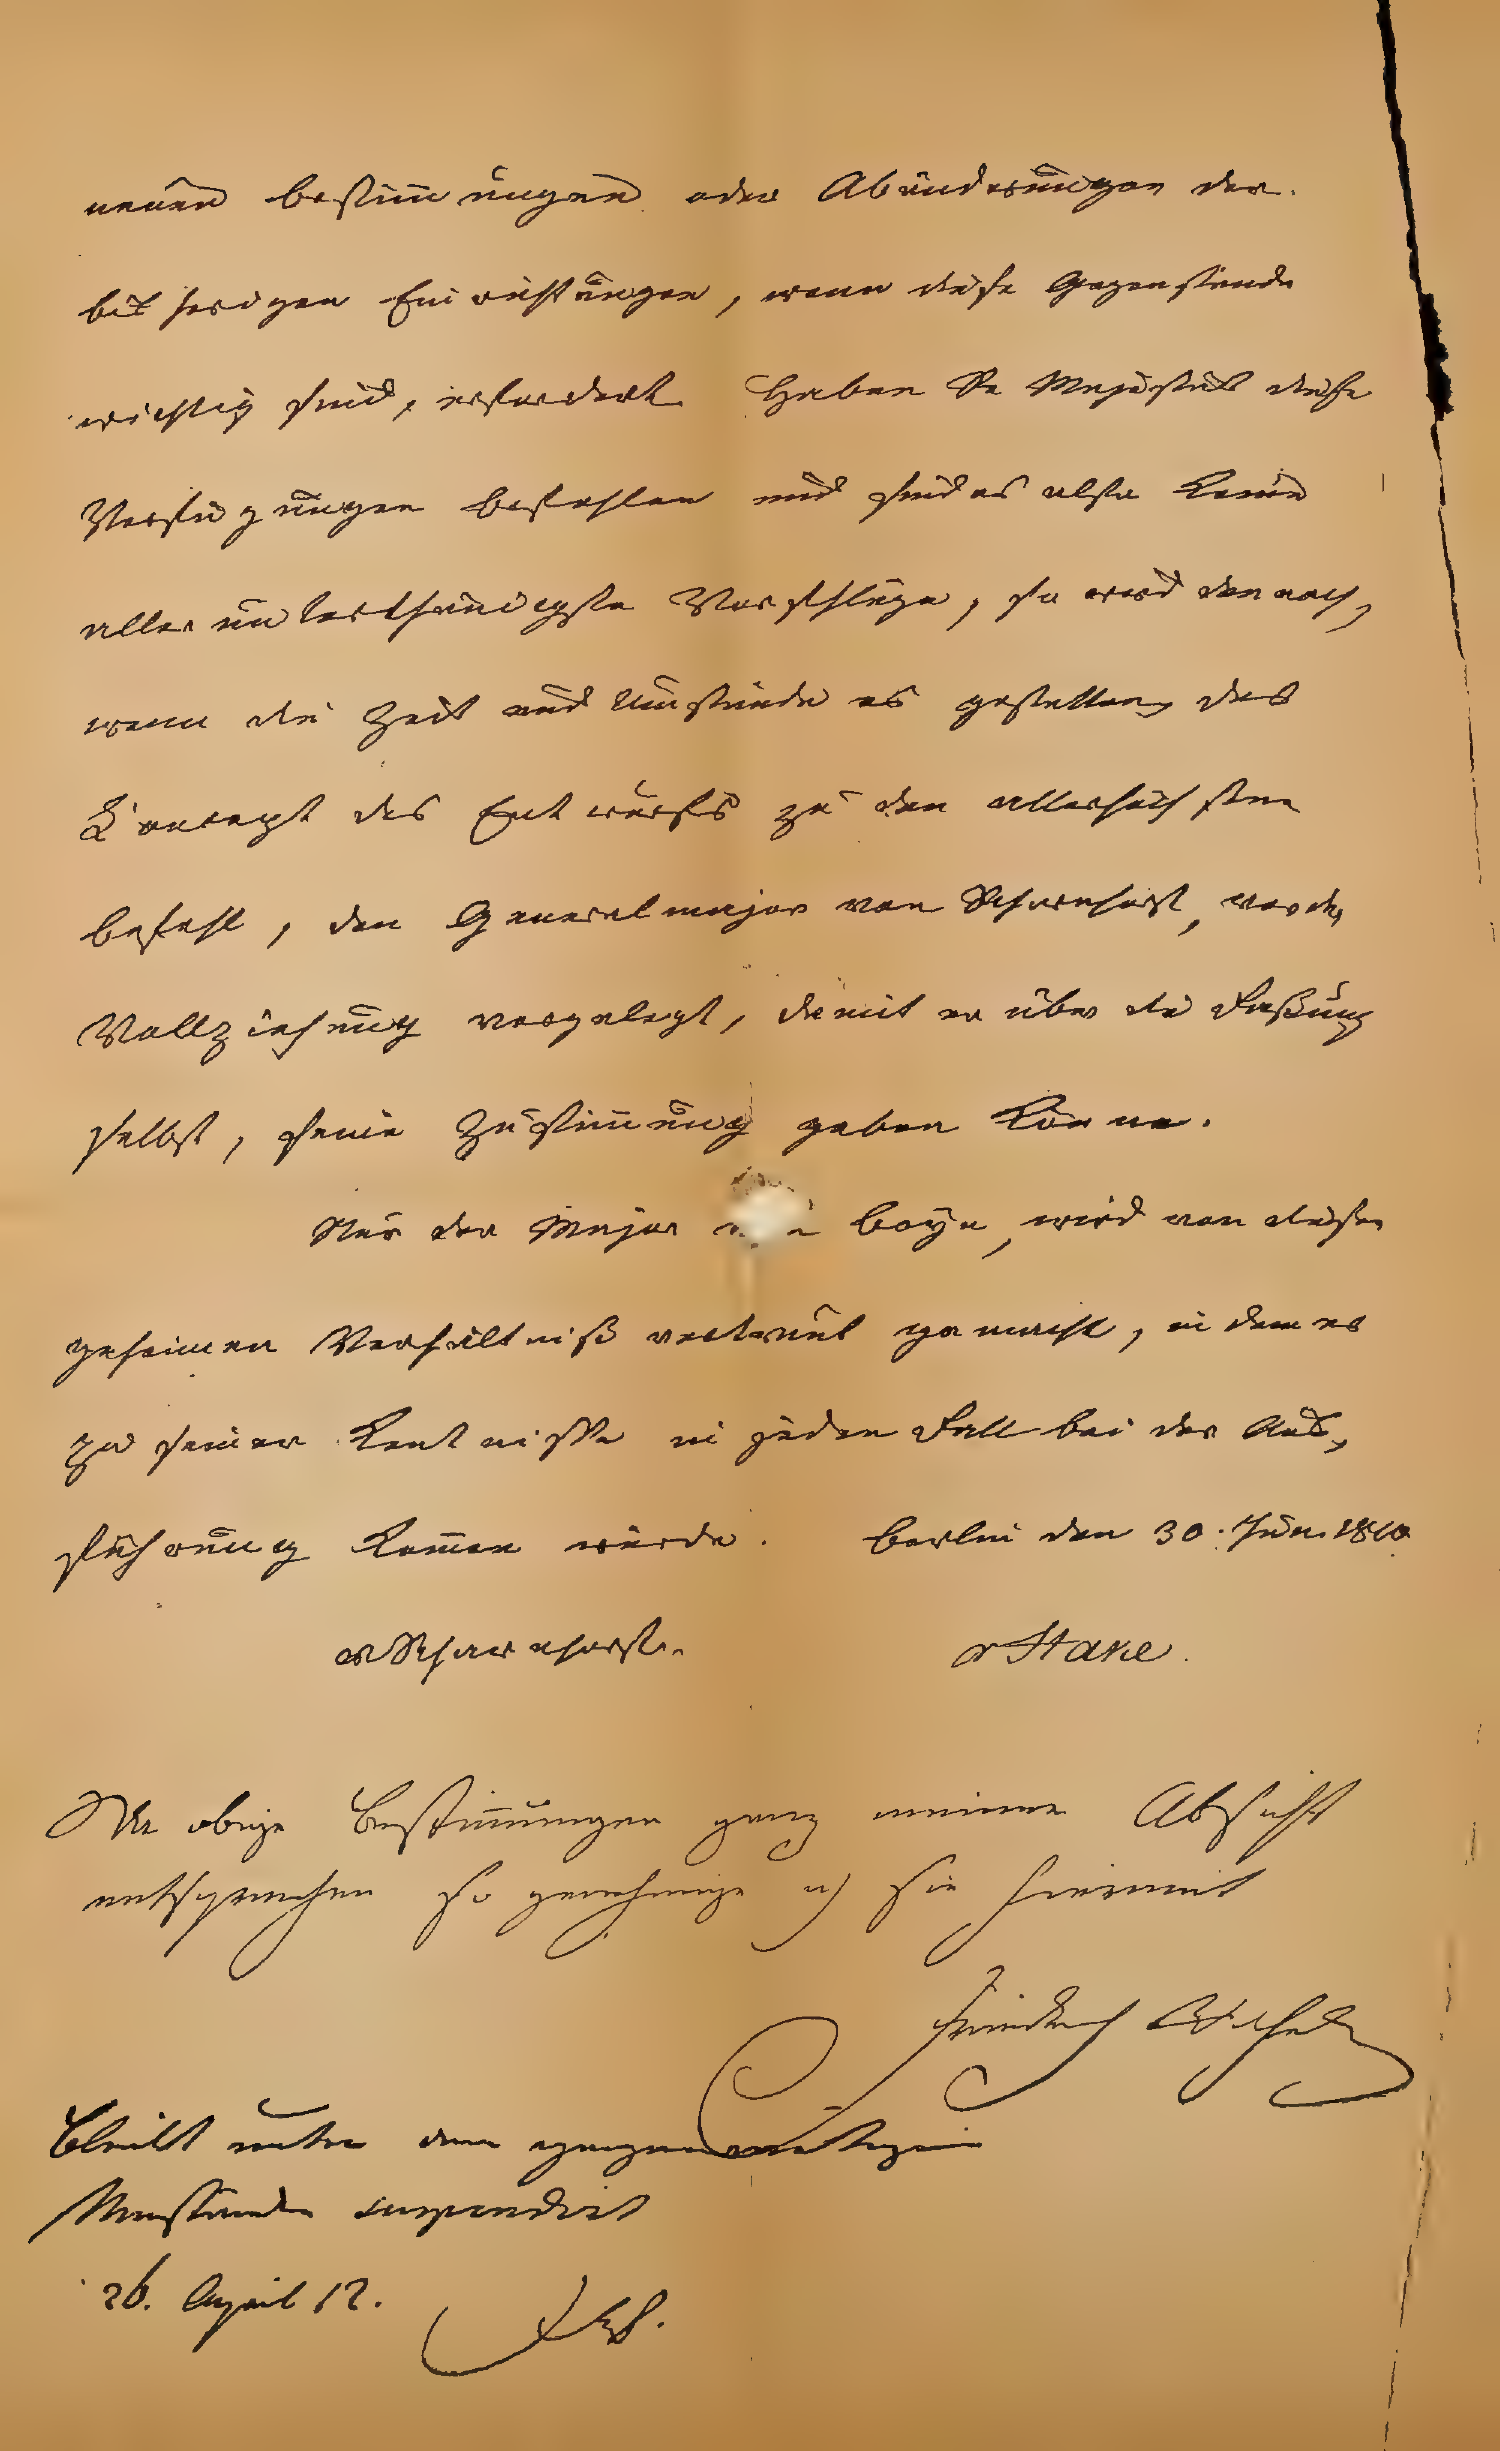 neuen Bestimungen oder Abänderungen der
bisherigen Einrichtungen, wenn diese Gegenstände
wichtig sind, erfordert. Haben Se Majestät diese
Verfügungen befohlen und sind es also keine
allerunterthänigste Vorschläge, so wird dennoch,
wenn die Zeit und Umstände es gestatten, das
Concept des Entwurfs zu den allerhöchsten
Befehl, den Generalmajor von Scharnhorst, vor der
Vollziehung vorgelegt, damit er über die Faßung
selbst, seine Zustimung geben könne.
Nur der Major Boyen, wird von diesen
geheimen Verhältniß vertraut gemacht, in dem es
zu seiner Kentnisse in jeden Fall bei der Aus,
führung komen würde. Berlin den 30. Jun. 1810
v Scharnhorst. v Hake.
Da obige Bestimungen ganz meiner Absicht
entsprechen so genehmige ich sie hiermit
Friedrich Wilhelm
Bleibt unter den gegenwärtigen
Umständen suspendirt
26. April 12.
FW.